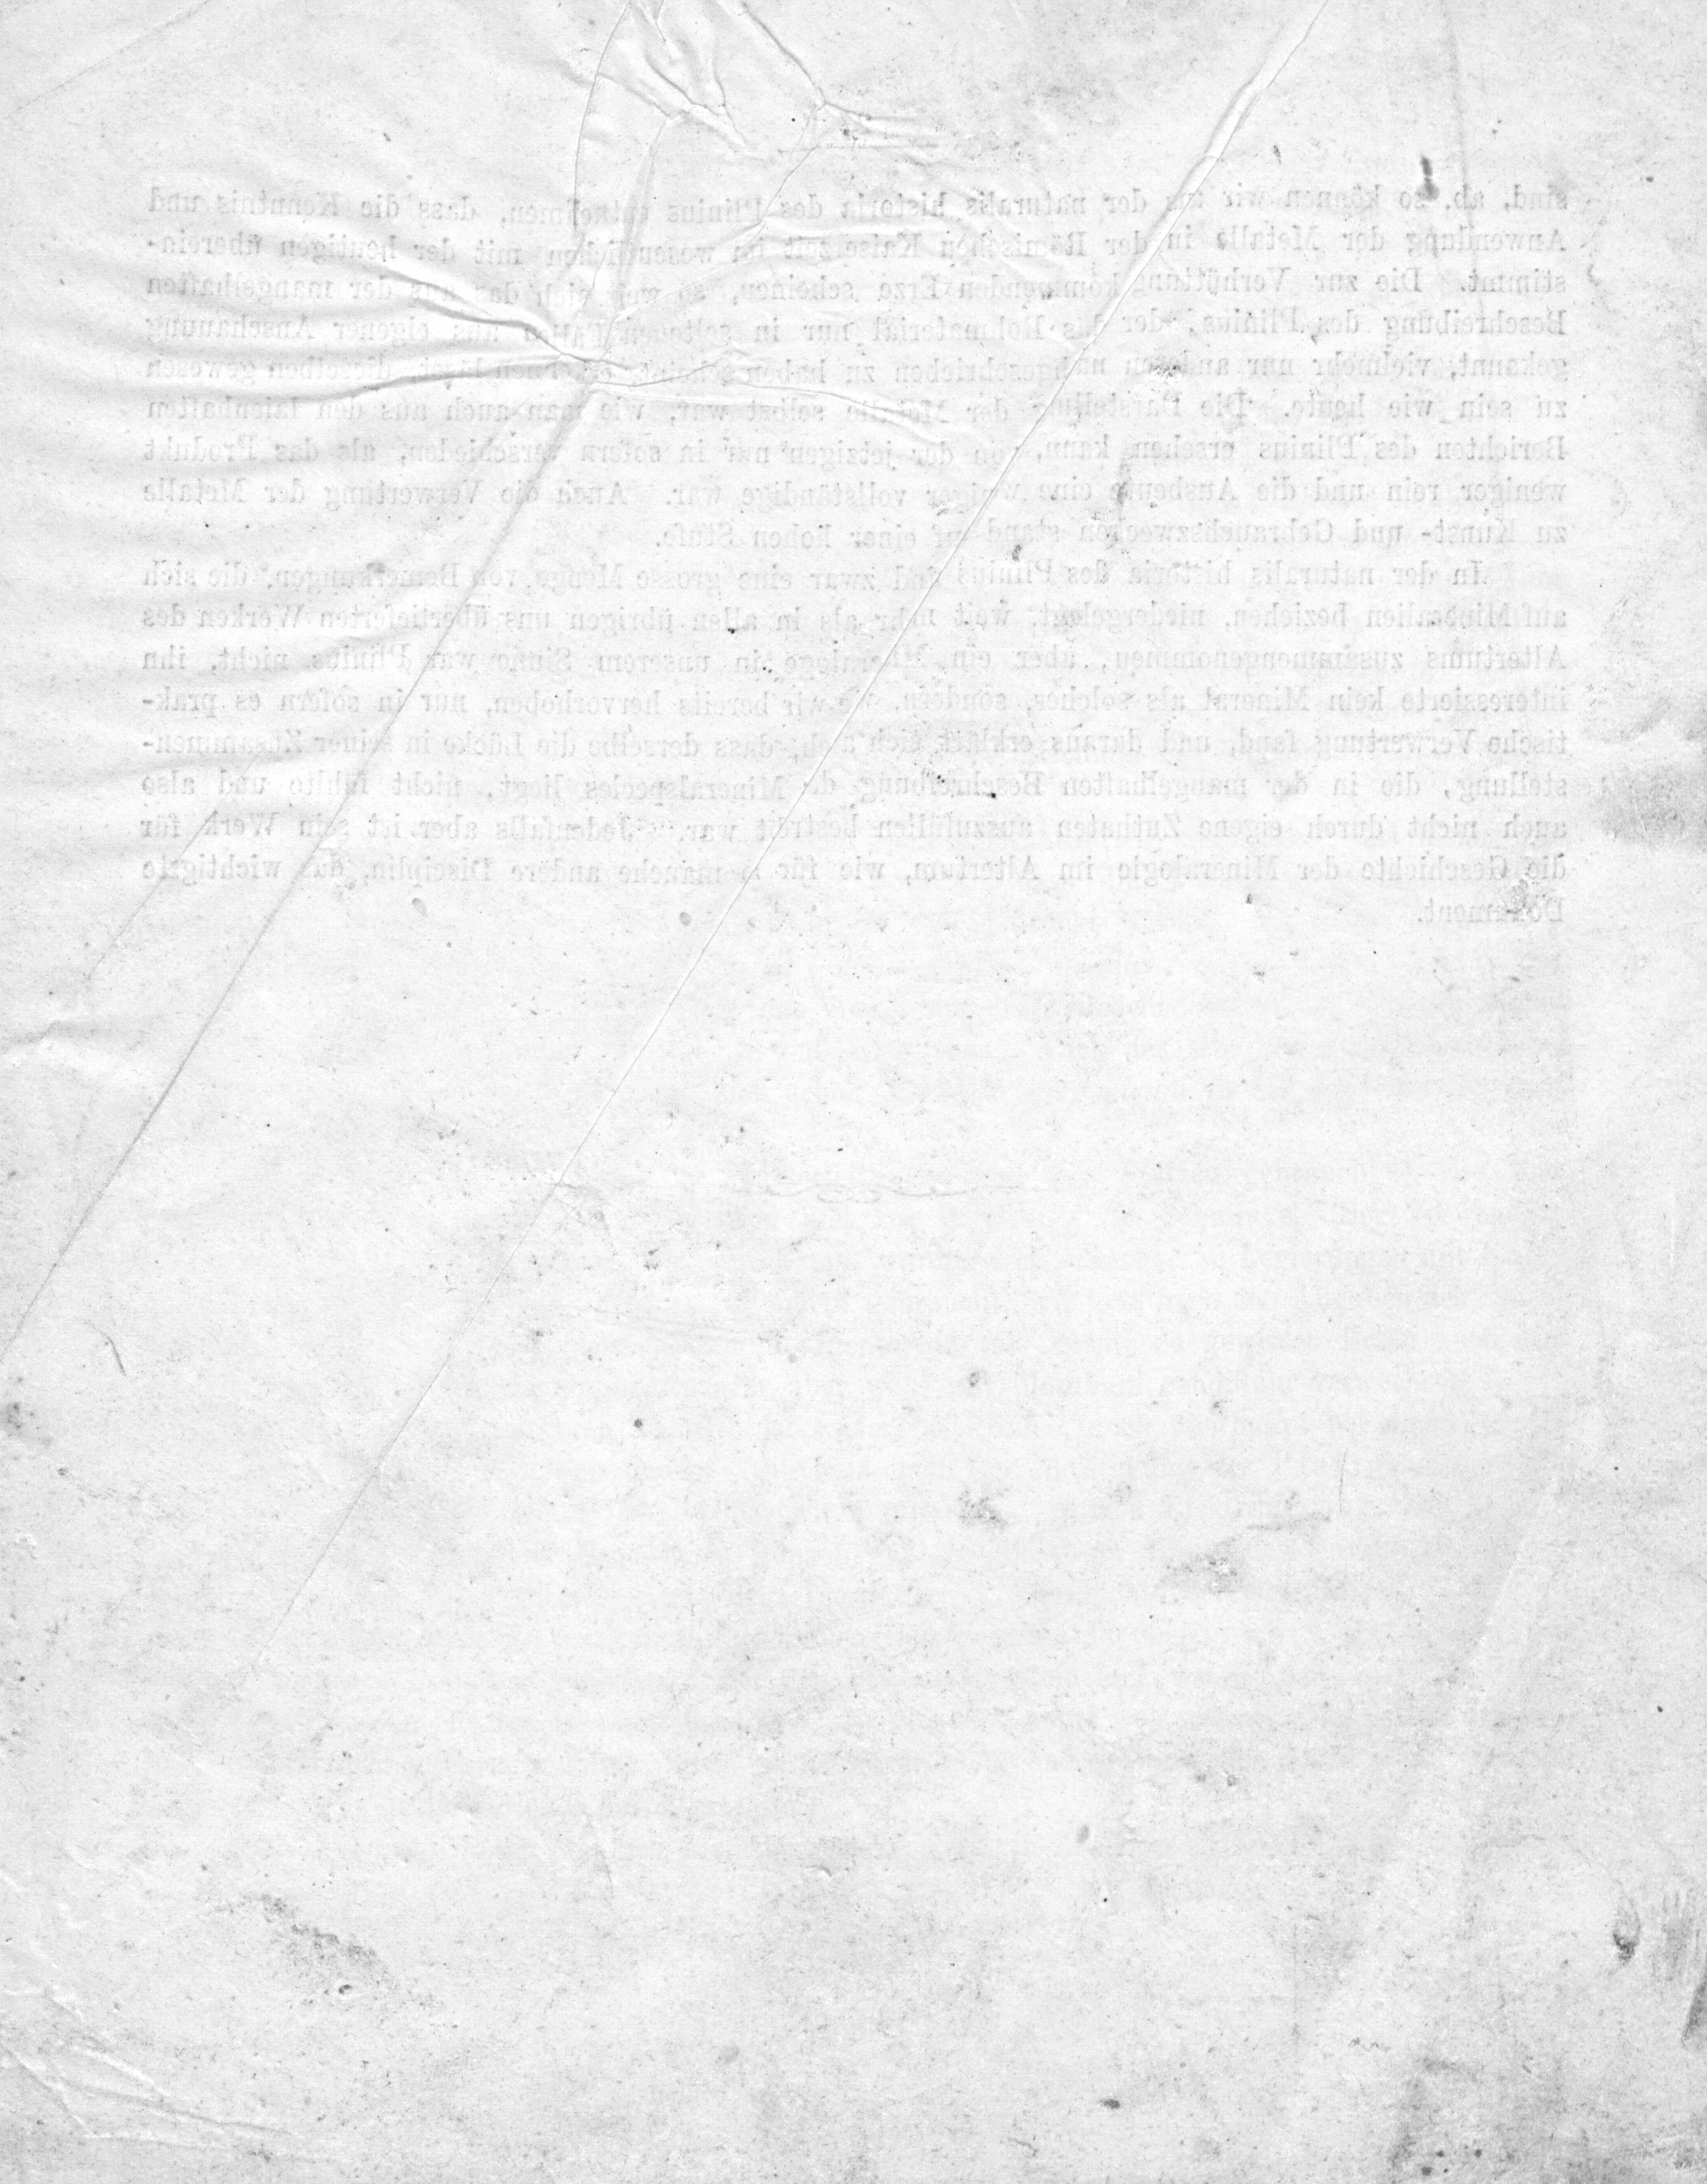 sind, ab, so können wir aus der naturalis historia des Plinius entnehmen, dass die Kenntnis und
Anwendung der Metalle in der Römischen Kaiserzeit im wesentlichen mit der heutigen überein-
stimmt. Die zur Verhüttung kommenden Erze scheinen, so weit sich das aus der mangelhaften
Beschreibung des Plinius, der das Rohmaterial nur in seltenen Fällen aus eigener Anschauung
gekannt, vielmehr nur anderen nachgeschrieben zu haben scheint, erkennen lässt, dieselben gewesen
zu sein wie heute. Die Darstellung der Metalle selbst war, wie man auch aus den laienhaften
Berichten des Plinius ersehen kann, von der jetzigen nur in sofern verschieden, als das Produkt
weniger rein und die Ausbeute eine weniger vollständige war. Auch die Verwertung der Metalle
zu Kunst- und Gebrauchszwecken stand auf einer hohen Stufe.
In der naturalis historia des Plinius sind zwar eine grosse Menge von Bemerkungen, die sich
auf Mineralien beziehen, niedergelegt, weit mehr als in allen übrigen uns überlieferten Werken des
Altertums zusammengenommen, aber ein Mineraloge in unserem Sinne war Plinius nicht, ihn
interessierte kein Mineral als solches, sondern, wie wir bereits hervorhoben, nur in sofern es prak-
tische Verwertung fand, und daraus erklärt sich auch, dass derselbe die Lücke in seiner Zusammen-
stellung, die in der mangelhaften Beschreibung der Mineralspecies liegt, nicht fühlte und also
auch nicht durch eigene Zuthaten auszufüllen bestrebt war. Jedenfalls aber ist sein Werk für
die Geschichte der Mineralogie im Altertum, wie für so manche andere Disciplin, das wichtigste
Dokument.